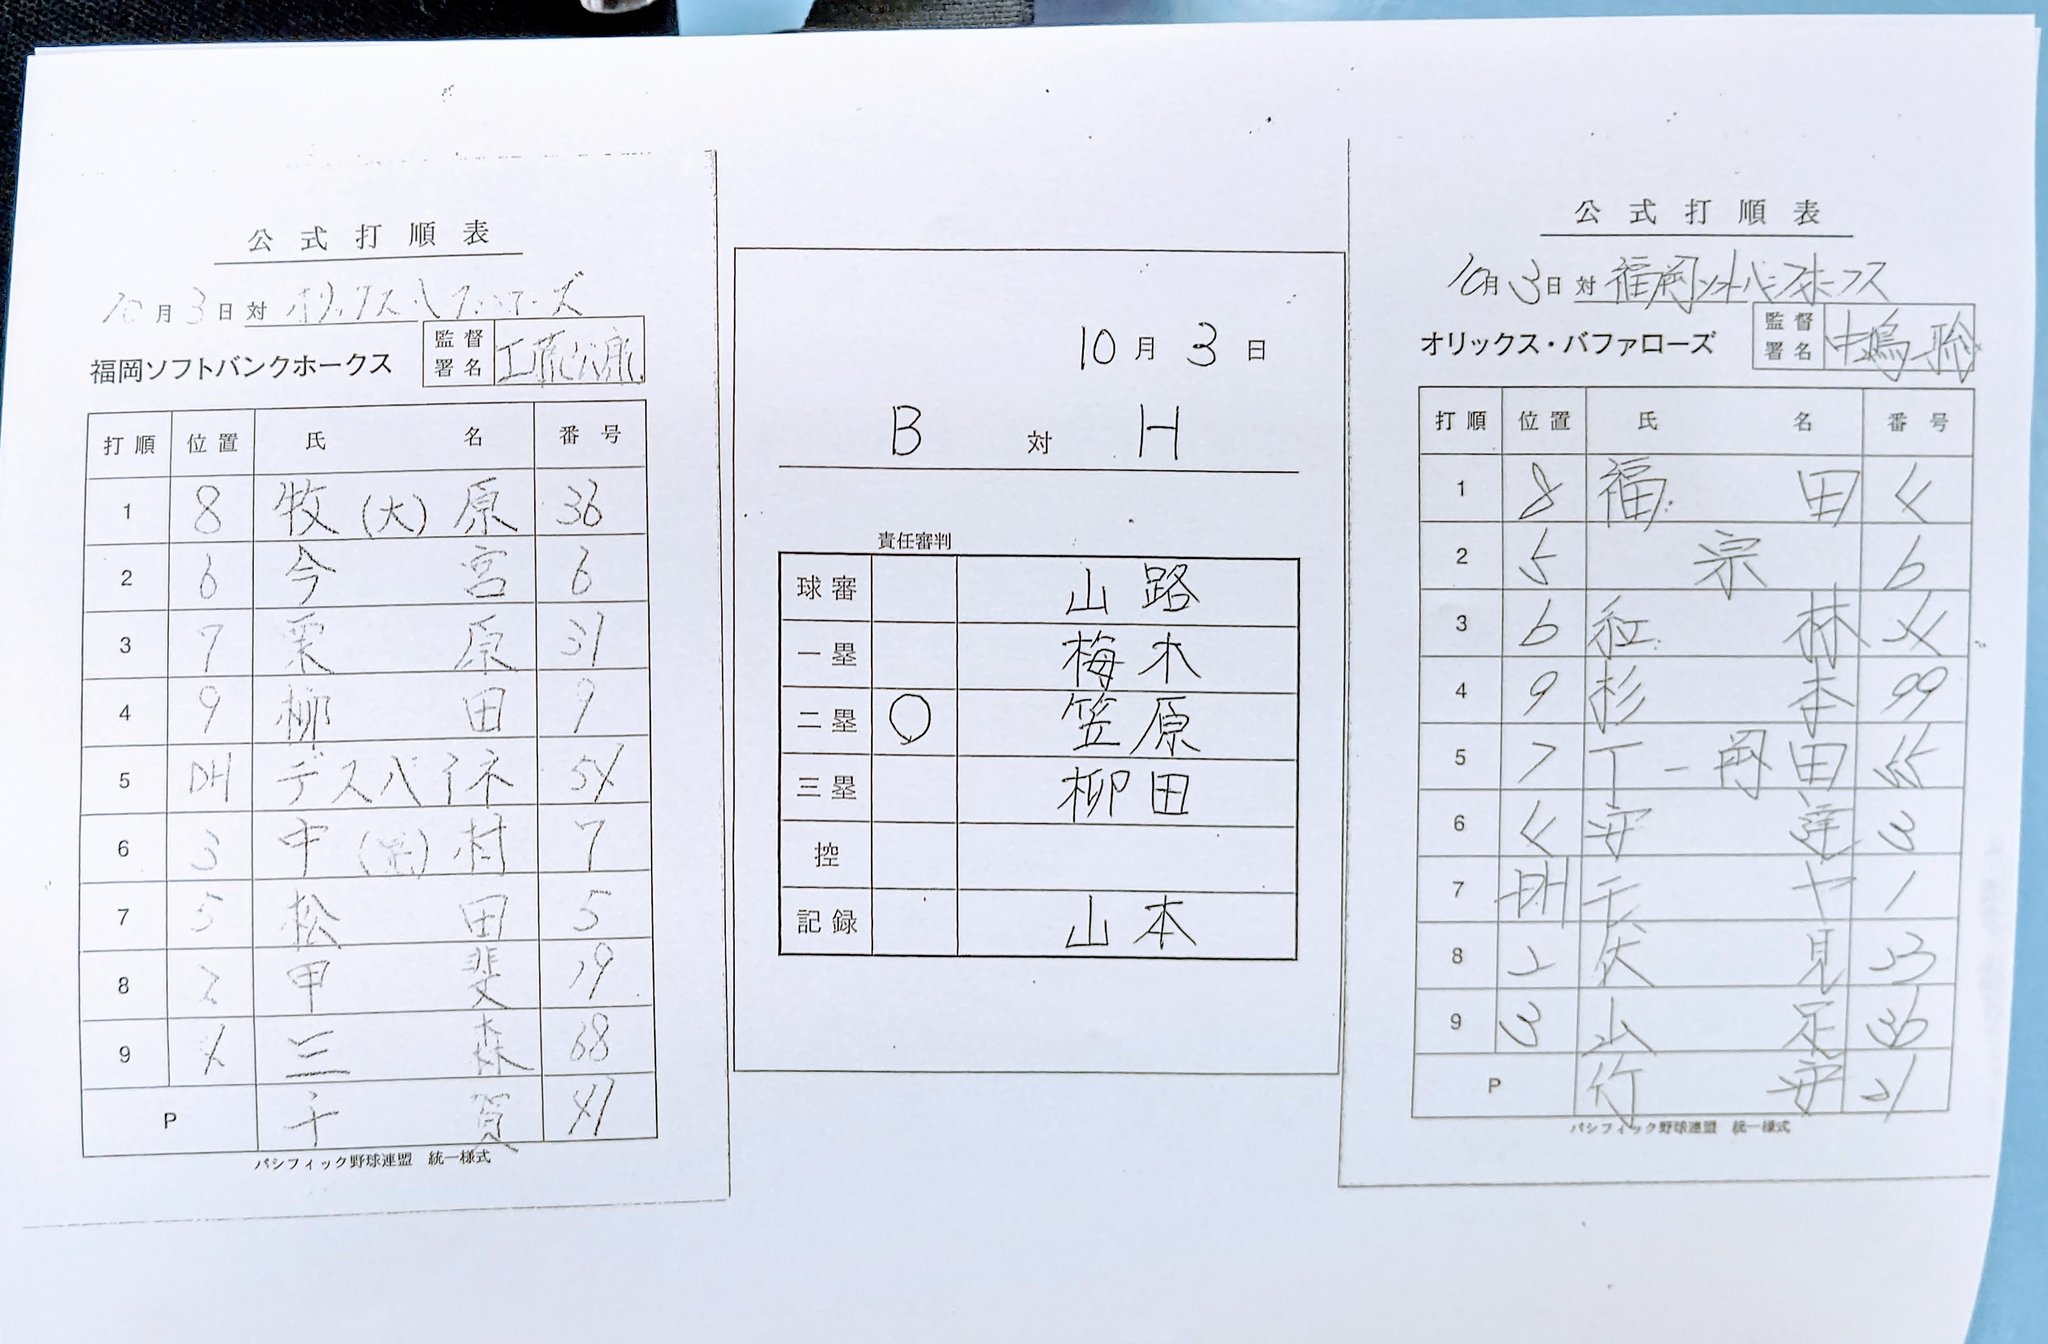 公式打順表
10月3日対オリックス・バファローズ
福岡ソフトバンクホークス 監督署名 工藤公康
打順 位置 氏名 番号
1 8 牧(大)原 36
2 6 今宮 6
3 7 栗原 31
4 9 柳田 9
5 DH デスパイネ 54
6 3 中(晃)村 7
7 5 松田 5
8 2 甲斐 19
9 4 三森 68
P 千賀 41
パシフィック野球連盟 統一様式
10月3日
B 対 H
責任審判
球審 山路
一塁 梅木
二塁 ○ 笠原
三塁 柳田
控
記録 山本
公式打順表
10月3日対福岡ソフトバンクホークス
オリックス・バファローズ 監督署名 中嶋聡
打順 位置 氏名 番号
1 8 福田 4
2 5 宗 6
3 6 紅林 24
4 9 杉本 99
5 7 T-岡田 55
6 4 安達 3
7 DH 元 1
8 2 伏見 23
9 3 山足 36
P 竹安 21
パシフィック野球連盟 統一様式